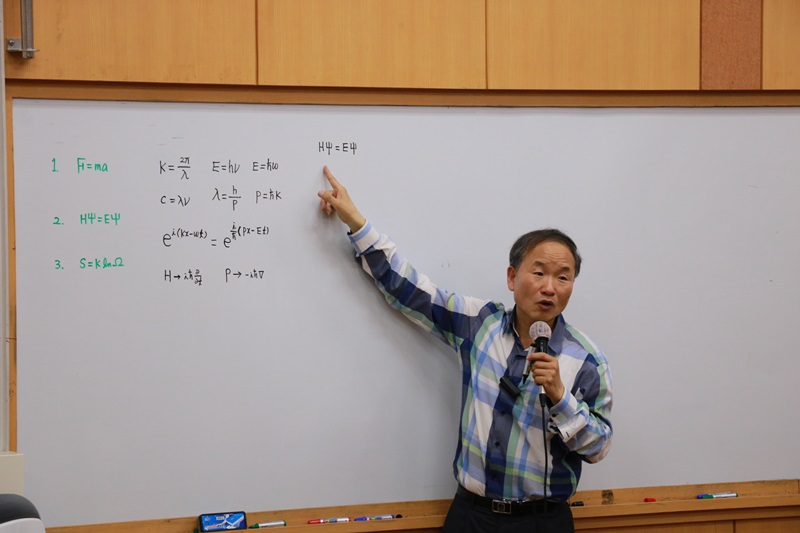 1. F=ma
2. HΨ=EΨ
3. S=klnΩ
K=2π/λ E=hν E=ħω
C=λν λ=h/P P=ħK
e^i(kx-ωt) = e^i/ħ(Px-Et)
H→iħ∂/∂t P→-iħ∇
HΨ=EΨ